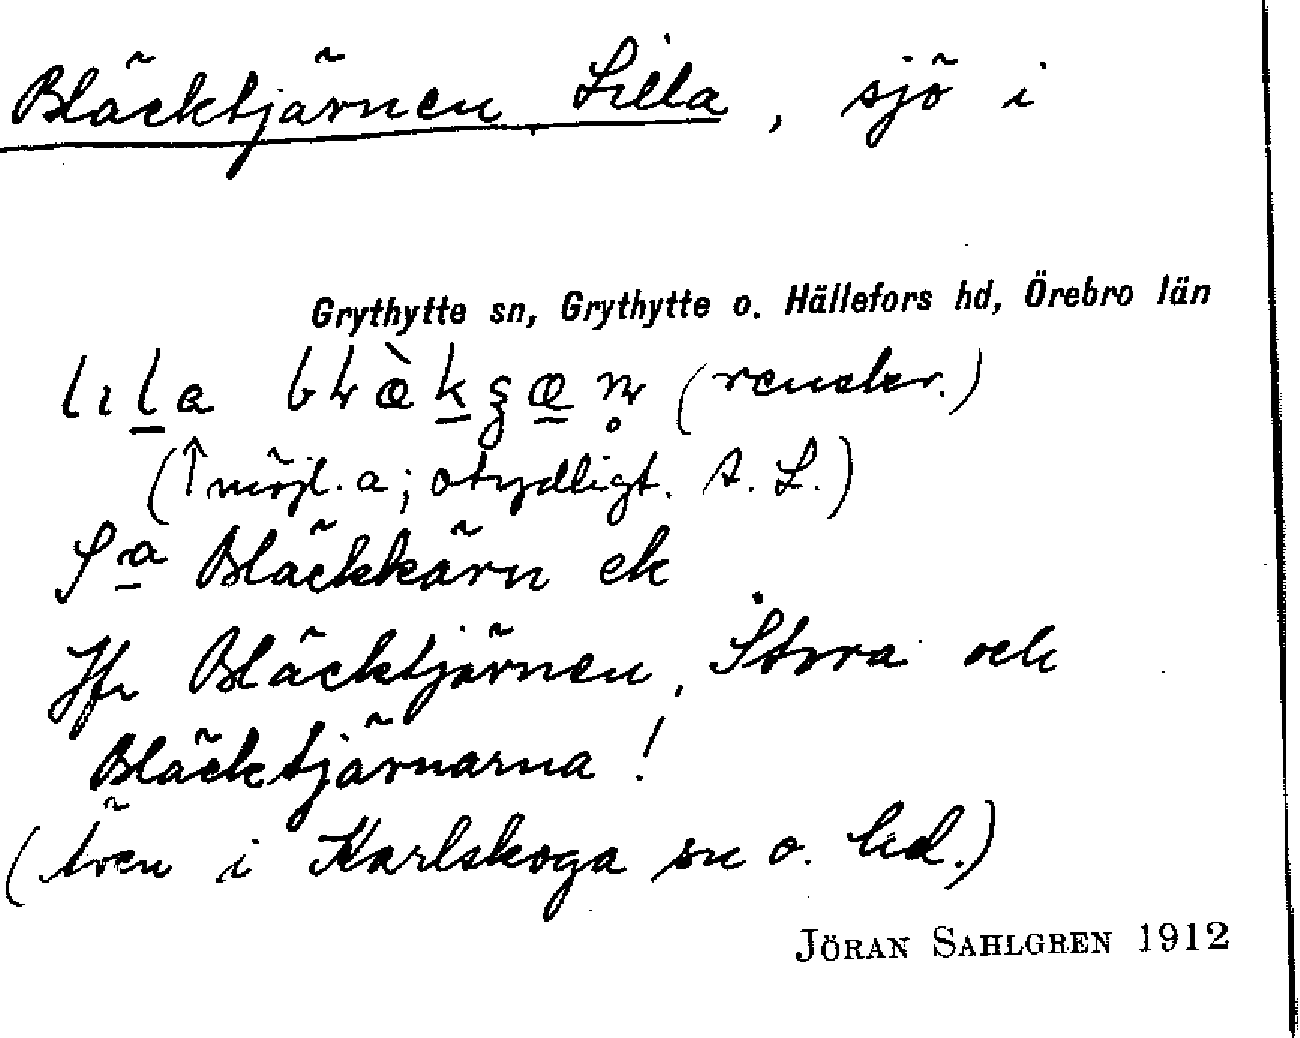 Bläcktjärnen, Lilla, sjö i
Grythytte sn, Grythytte o. Hällefors hd, Örebro län
(renskr.)
(↑ möjl. a; otydligt. A. L.)
Sa Bläckkärn ek
Jfr Bläcktjärnen, Stora och
Bläcktjärnarna!
(även i Karlskoga sn o. hd.)
JÖRAN SAHLGREN 1912